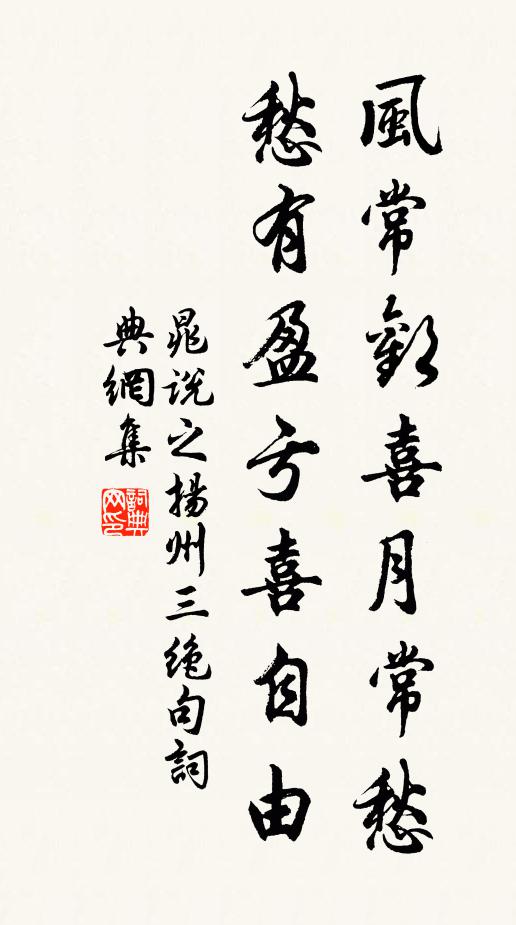 風常歡喜月常愁
愁有盈亏喜自由
晁說之揚州三絶句詞
典網集
詞典
网印